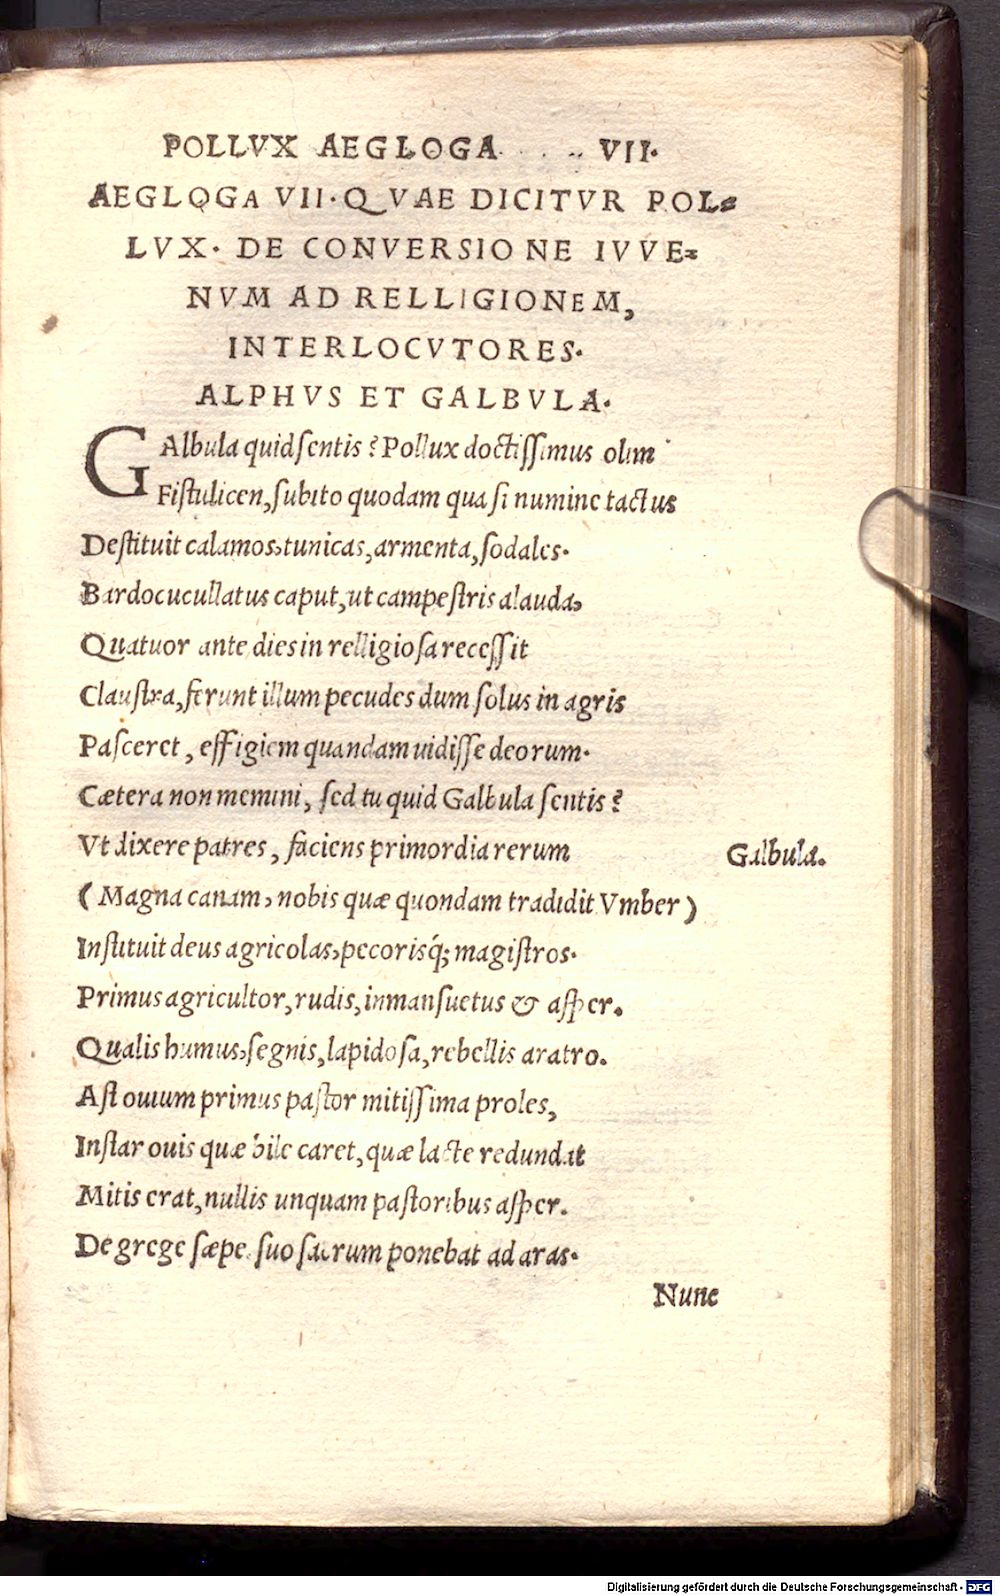 POLLVX AEGLOGA VII.
AEGLOGA VII. QVAE DICITVR POL=
LVX. DE CONVERSIONE IVVE=
NVM AD RELLIGIONEM,
INTERLOCVTORES.
ALPHVS ET GALBVLA.
GAlbula quid sentis? Pollux doctissimus olim
Fistulicen, subito quodam quasi numine tactus
Destituit calamos, tunicas, armenta, sodales.
Bardocucullatus caput, ut campestris alauda,
Quatuor ante dies in relligiosa recessit
Claustra, ferunt illum pecudes dum solus in agris
Pasceret, effigiem quandam uidisse deorum.
Cætera non memini, sed tu quid Galbula sentis?
Vt dixere patres, faciens primordia rerum Galbula.
(Magna canam, nobis quæ quondam tradidit Vmber)
Instituit deus agricolas, pecorisq́; magistros.
Primus agricultor, rudis, inmansuetus & asper.
Qualis humus, segnis, lapidosa, rebellis aratro.
Ast ouium primus pastor mitissima proles,
Instar ouis quæ bile caret, quæ lacte redundat
Mitis erat, nullis unquam pastoribus asper.
De grege sæpe suo sacrum ponebat ad aras.
Nunc
Digitalisierung gefördert durch die Deutsche Forschungsgemeinschaft - DFG